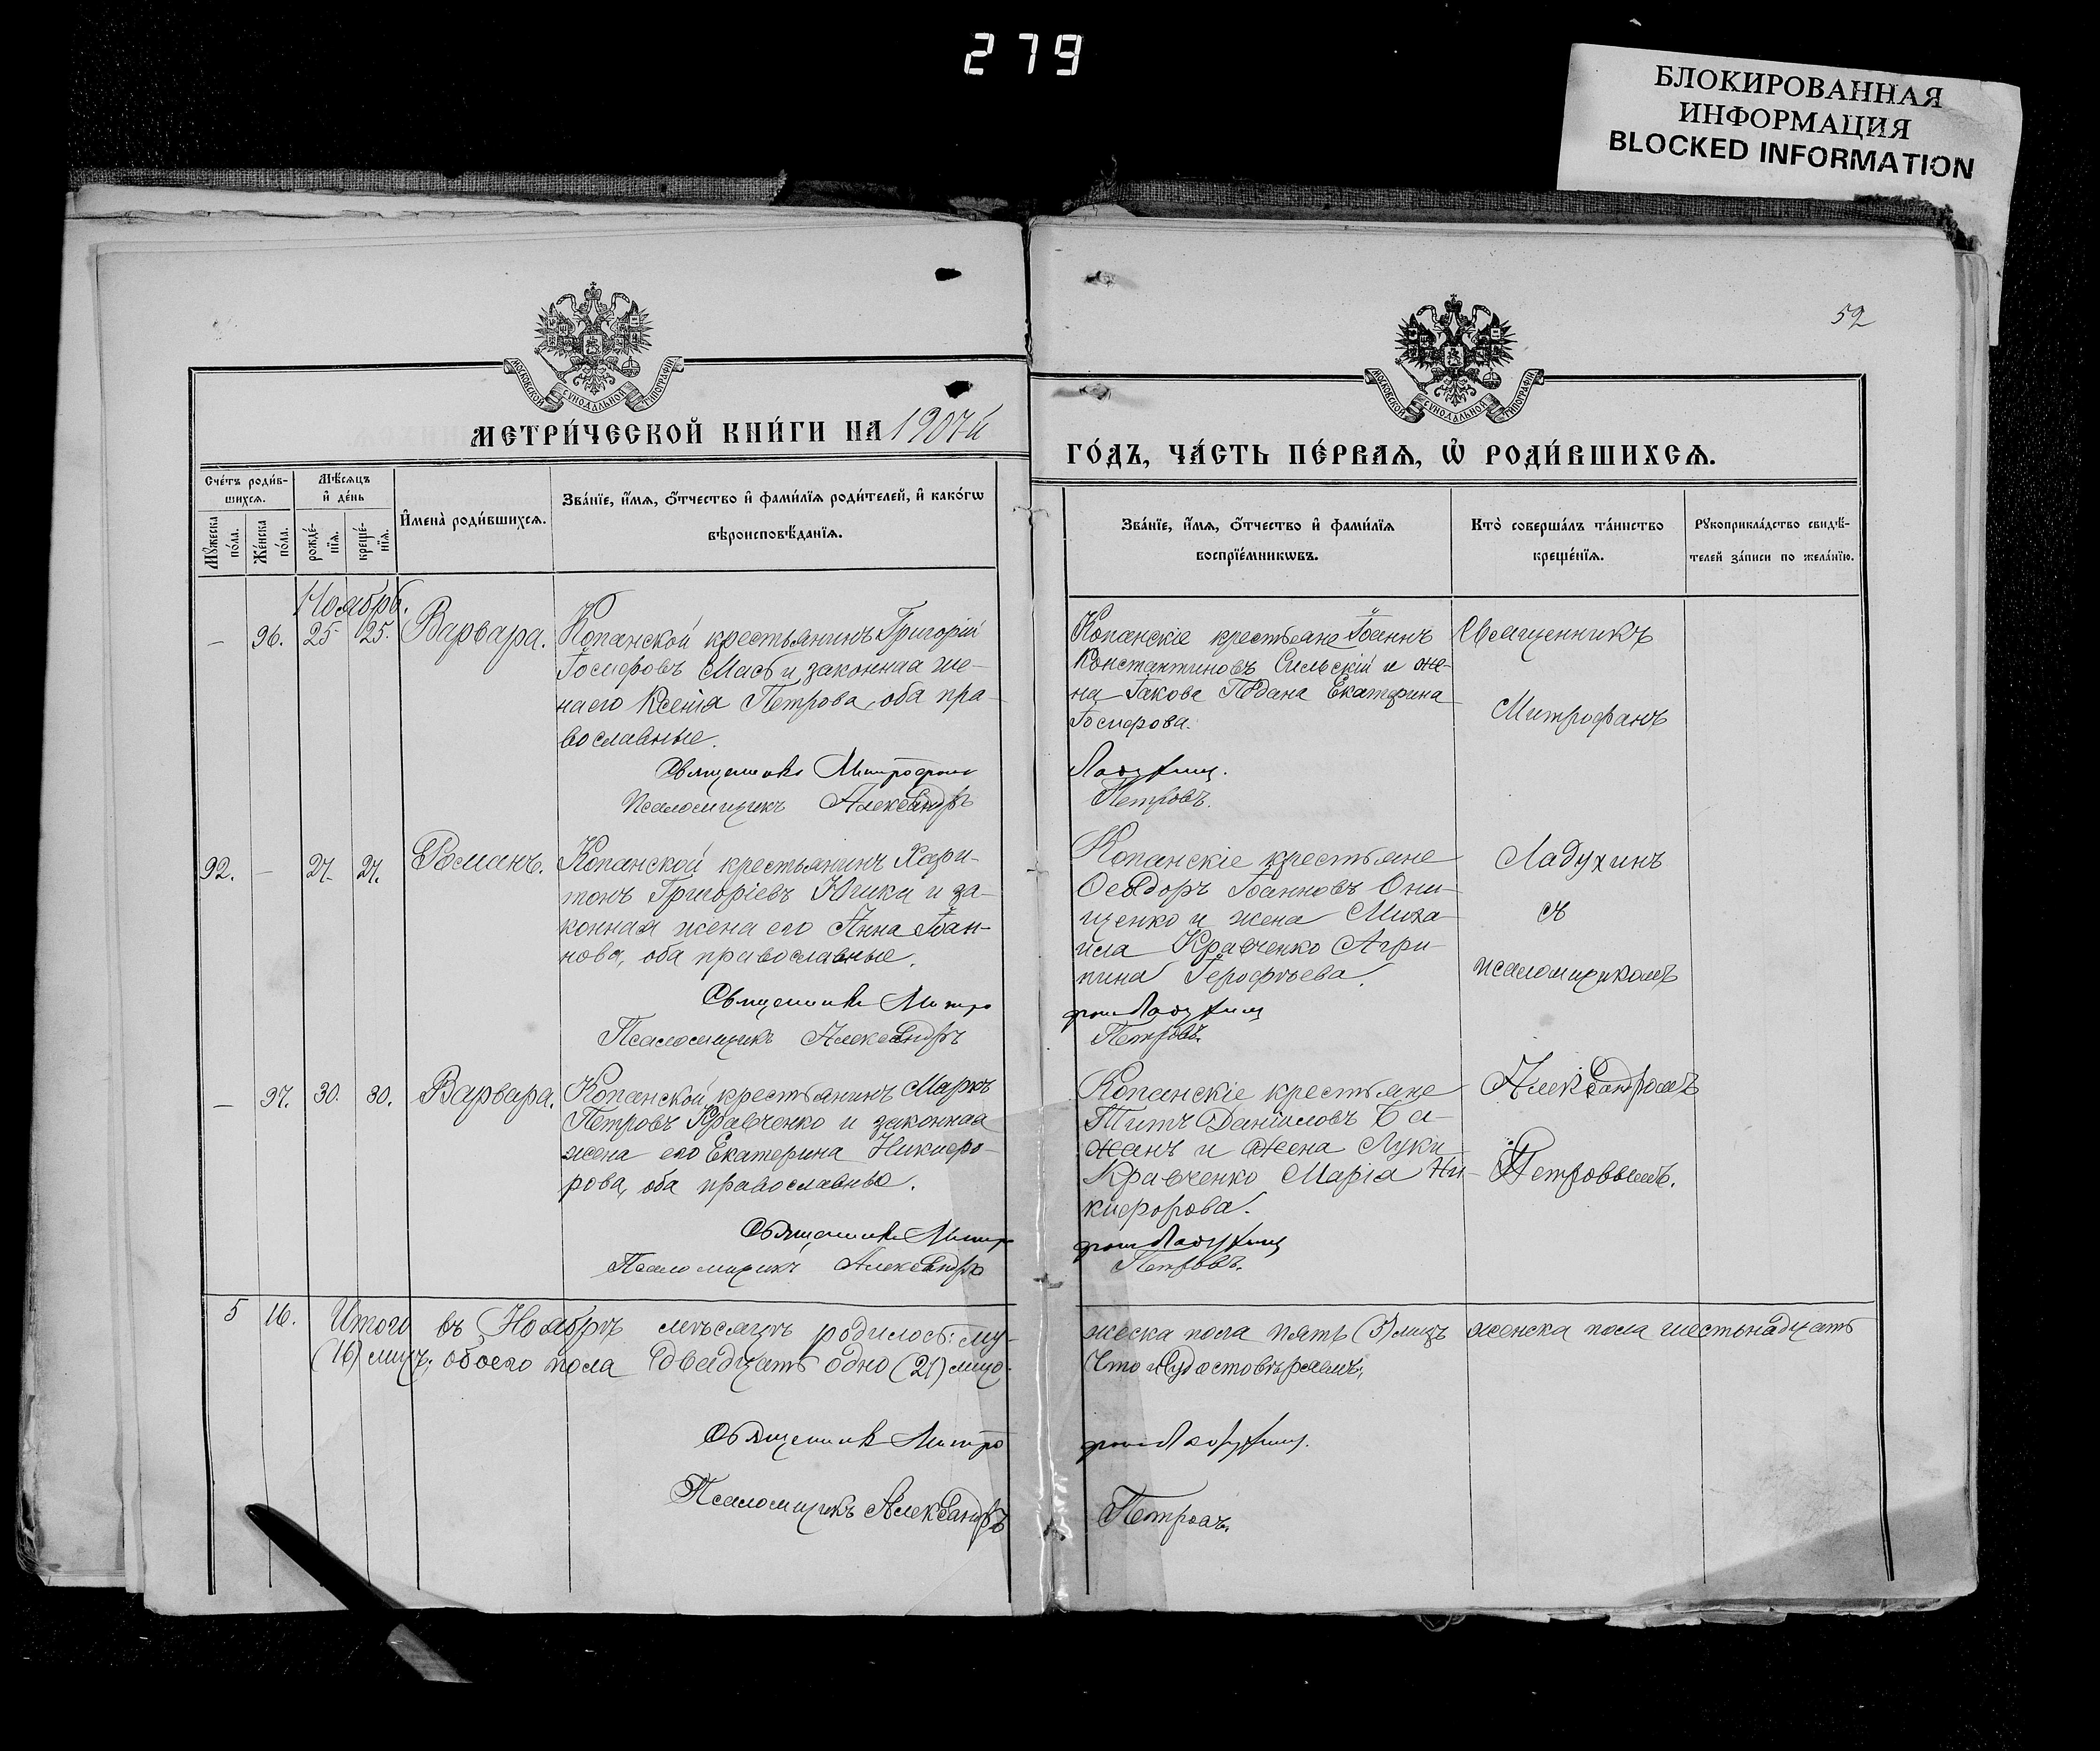 279
БЛОКИРОВАННАЯ
ИНФОРМАЦИЯ
BLOCKED INFORMATION
52
МОСКОВСКОЙ СѴНОДАЛЬНОЙ ТИПОГРАФІИ
МОСКОВСКОЙ СѴНОДАЛЬНОЙ ТИПОГРАФІИ
МЕТРИ́ЧЕСКОЙ КНИ́ГИ НА 1907й
ГО́ДЪ, ЧА́СТЬ ПЕ́РВАѦ, Ѡ҆ РОДИ́ВШИХСѦ.
Сче́тъ роди́в-
шихсѧ.
Мꙋ́жеска
по́ла.
Же́нска
по́ла.
Мѣ́сѧцъ
и҆ де́нь
рожде́-
нїѧ.
креще́-
нїѧ.
И҆мена̀ роди́вшихсѧ.
Зва́нїе, и҆́мѧ, ѻ҆́тчество и҆ фами́лїѧ роди́телей, и҆ како́гѡ
вѣроисповѣ́данїѧ.
Зва́нїе, и҆́мѧ, ѻ҆́тчество и҆ фами́лїѧ
воспрїе́мникѡвъ.
Кто̀ соверша́лъ та́инство
креще́нїѧ.
Рꙋкоприкла́дство свидѣ́-
телей за́писи по жела́нїю.
Ноябрь.
— 96. 25 25. Варвара.
Копанской крестьянинъ Григорій
Іосифовъ Мась и законная же-
на его Ксенія Петрова, оба пра-
вославные.
Священникъ Митрофанъ
Псаломщикъ Александръ
Копанскіе крестьяне Іоаннъ
Константиновъ Сильскій и же-
на Іакова Екатерина
Іосифова.
Ладухинъ.
Петровъ.
Священникъ
Митрофанъ
92. — 27. 27. Романъ.
Копанской крестьянинъ Хари-
тонъ Григоріевъ и за-
конная жена его Анна Іоан-
нова, оба православные.
Священникъ Митро
Псаломщикъ Александръ
Копанскіе крестьяне
Ѳеодоръ Іоанновъ Они-
щенко и жена Миха-
ила Кравченко Агри-
пина Іерофѣева.
фанъ Ладухинъ
Петровъ.
Ладухинъ
съ
псаломщикомъ
— 97. 30. 30. Варвара.
Копанской крестьянинъ Маркъ
Петровъ Кравченко и законная
жена его Екатерина Никифо-
рова, оба православные.
Священникъ Митро
Псаломщикъ Александръ
Копанскіе крестьяне
Титъ Даніиловъ Ба-
жанъ и жена Луки
Кравченко Марія Ни-
кифорова.
фанъ Ладухинъ
Петровъ.
Александромъ
Петровымъ.
5 16. Итого въ Ноябрѣ мѣсяцѣ родилось: му-
жеска пола пять (5) лицъ женска пола шестьнадцать
(16) лицъ; обоего пола двадцать одно (21) лицо.
Что и удостовѣряемъ:
Священникъ Митро
фанъ Ладухинъ.
Псаломщикъ Александръ
Петровъ.